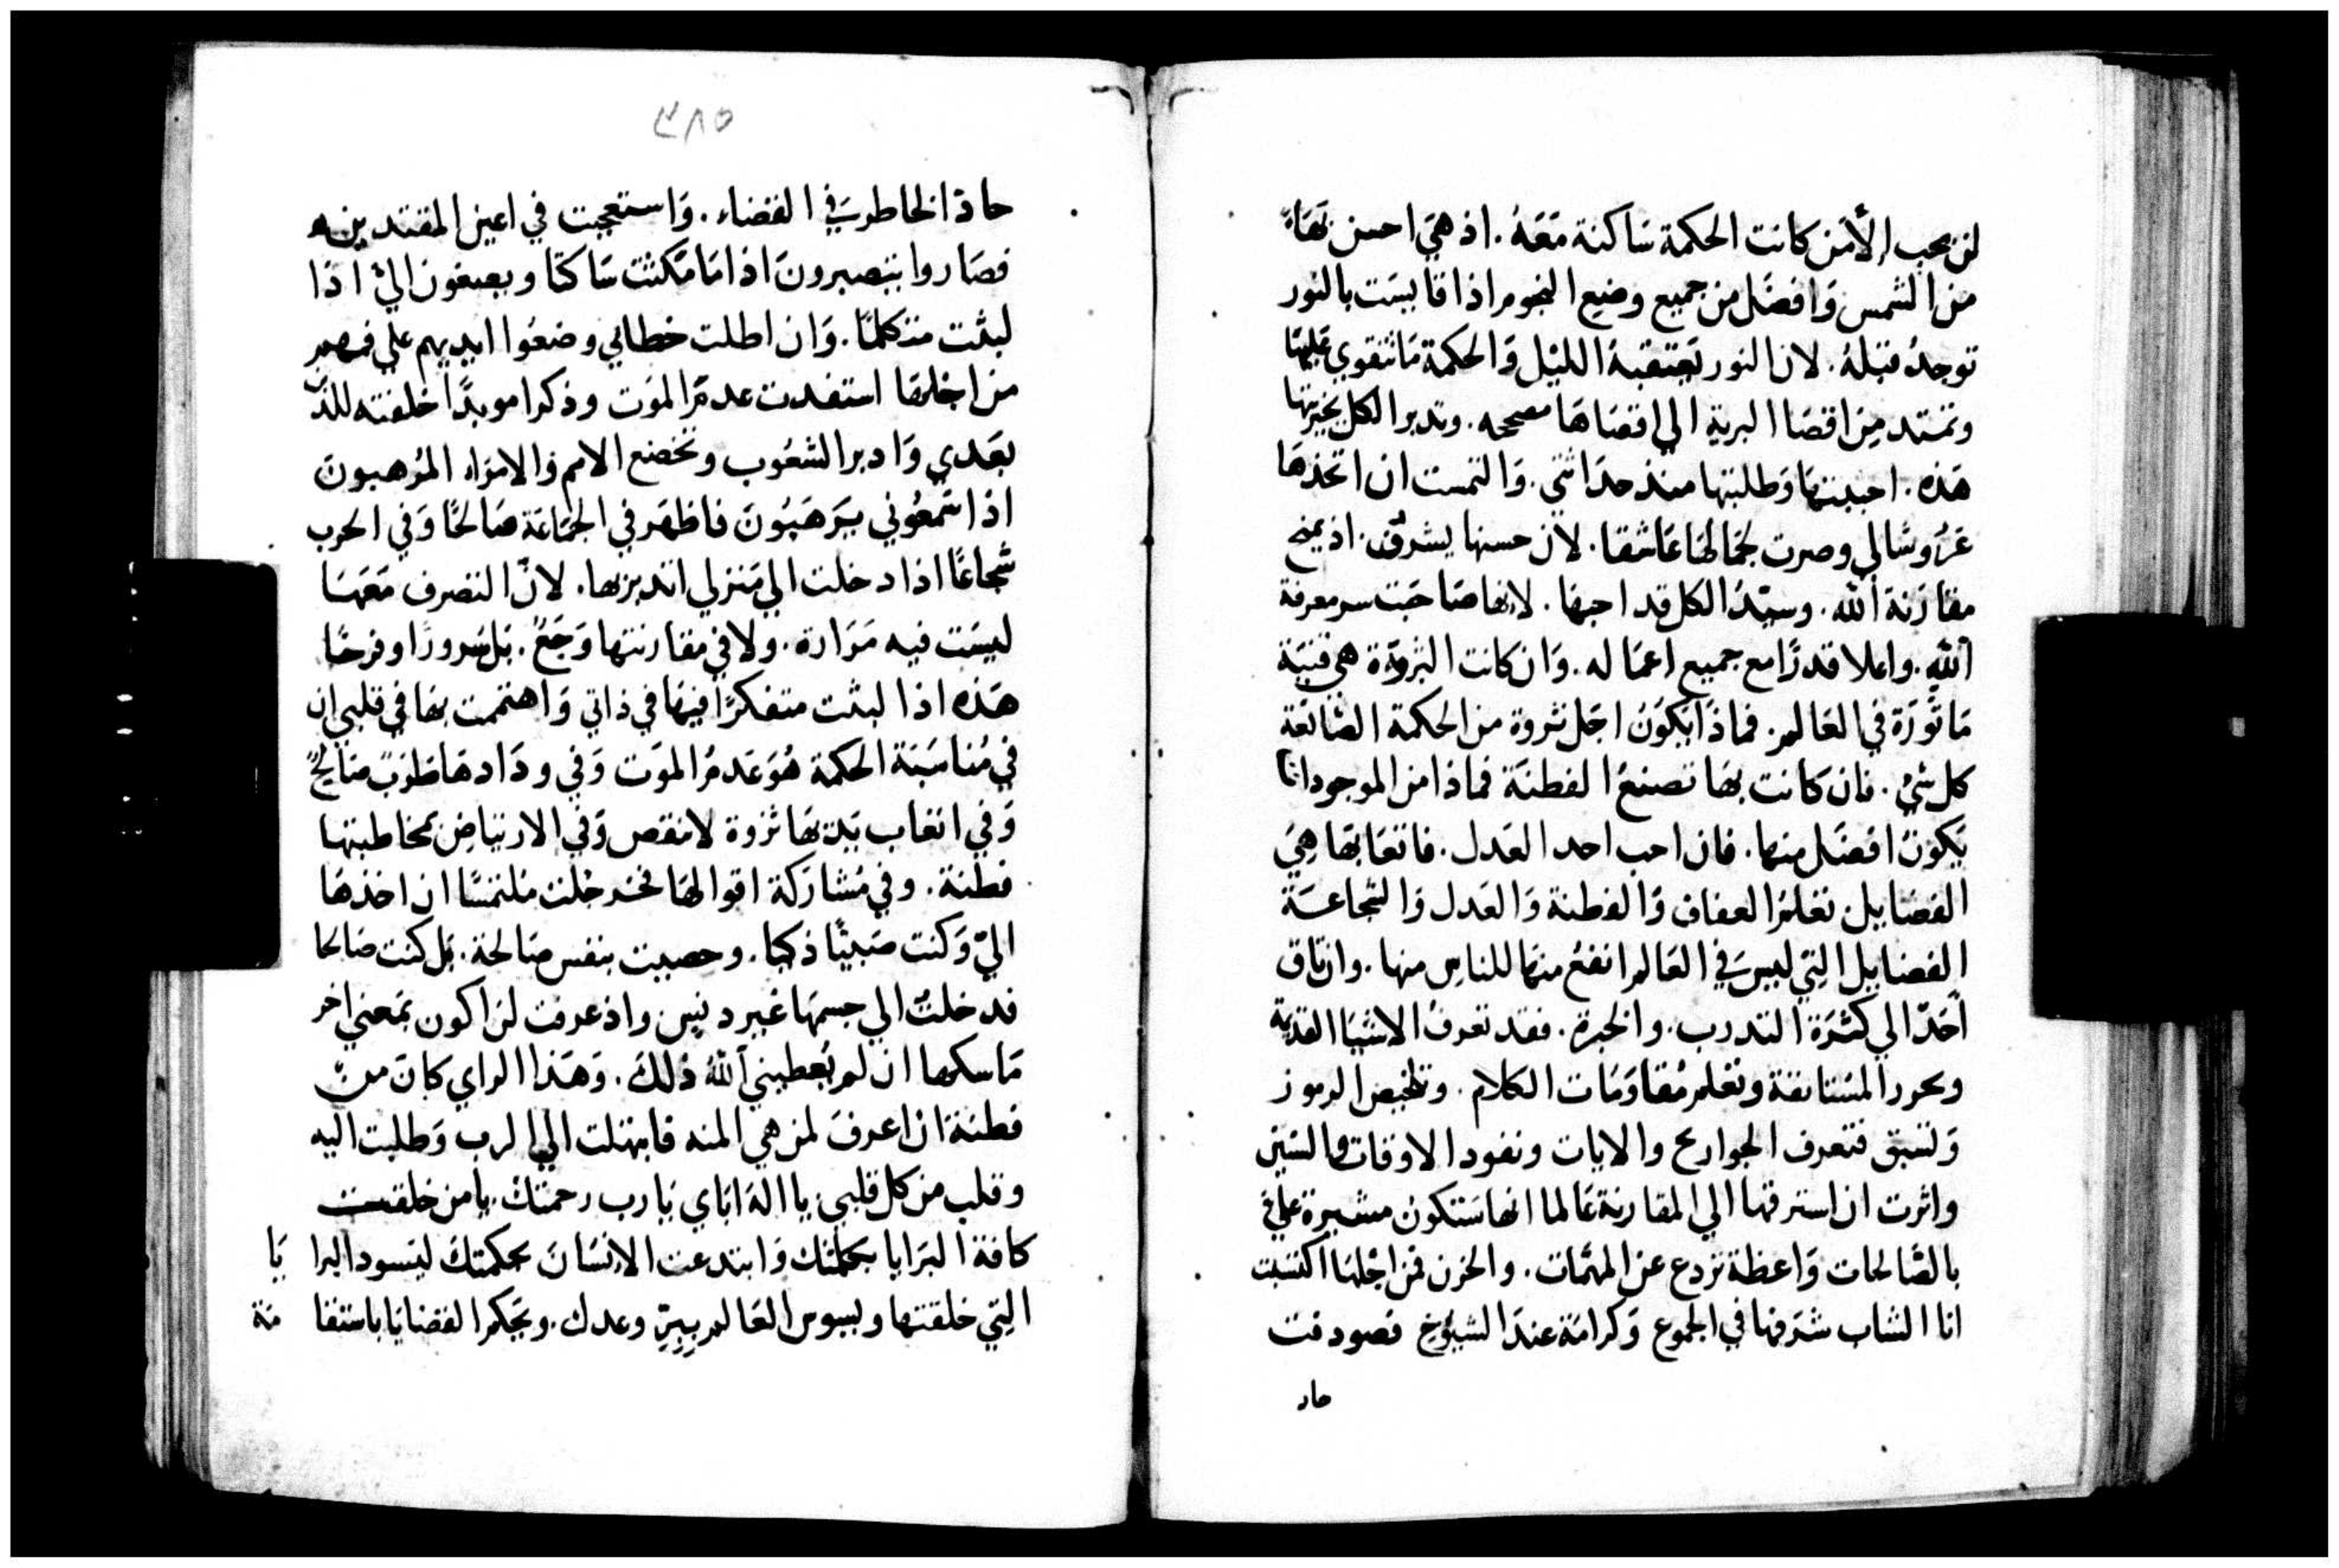 لن يحب إلا من كانت الحكمة سَاكنة مَعَهُ. اذ هيَ احسن بَهَاءً
من الشمس وَافضَل من جميع وضع النجوم اذا قايسَت بالنور
توجدُ قبَلهُ. لان النور تعتقبهُ الليْل وَالحكمة مَا تتقوي عَليهَا
وتمتد مِن اقصَا البرية الي اقصَاهَا مصححه. وتدبر الكل بخيريتها
هَذه. احببتهَا وَطلبتها منذ حدَاثتي. وَالتمست ان اتخذهَا
عَرُوسًا لي وصرت لجمَالهَا عَاشقا. لان حسنها يشرق. اذ يمنح
مقارَنة الله. وسيّدُ الكل قد احبهَا. لانها صَاحَبَت سر معرفة
الله. واعلا قدرًا مع جميع اعمَاله. وَان كانت الثروَة هي قنيَة
مَاثورَة في العَالم. فماذَا يَكونُ اجَل ثروة من الحكمة الصَّانعَة
كل شيْ. فان كانت بهَا تصنعُ الفطنَة فماذا من الموجودات
يَكونُ افضَل منها. فان احب احد العَدل. فاتعَابَهَا هِيَ
الفضَايل تعَلمُ العفاف وَالفطنة وَالعَدل وَالشجاعَة
الفضايل التِي ليسَ في العَالم انفعُ منهَا للناسِ منها. وان تاق
أحَدٌ الي كثرَة التدرب. والخبرة. فقد تعرفُ الاشيَا القديمة
وتحرر المسَتانفة وتعْلم مُقاوَمَات الكلام. وتلخيص الرموز
وَتسَبق فتعرف الجوارح والايات ونفود الاوقات والسنين
واثرت ان استرقهَا الي المقارنة عَالما انهَا سَتكونُ مشيرة علي
بالصَّالحات وَاعظة تردع عن المهمَّات. والحزن فمن اجْلهَا اكتسَبت
انا الشاب شَرَفهَا في الجموع وَكرامَة عندَ الشيُوخ فصودفت
حاد
٣٨٥
حاد الخاطر سَ في القضاء. وَاستعجبت في اعين المقتدرين
فصَاروا يتبصبرونَ اذا مَا مَكثت سَاكتًا ويصغون اليْ اذَا
لبثت متكلمًا. وَان اطلت خطابي وضعُوا ايديهم علي فمهم
من اجلهَا استفدت عدمَ الموَت وذكرا موبدًا خلفته للذين
بعَدي وَادبر الشعُوب وتخضع الامم والامرَاء المرُهبون
اذا سَمعُوني يَرهَبُونَ فاظهَر في الجمَاعَة صَالحًا وَفي الحرب
شجاعًا اذا دخلت الي مَنزلي اتدبر بها. لانّ التصرف مَعَهَا
ليسَت فيه مَرَارة. ولا في مقارنتها وَجَعٌ. بَل سُرورًا وفرحًا
هَذه اذا لبثت متفكرًا فيهَا في ذاتي وَاهتممت بهَا في قلبي ان
في مُناسَبَة الحكمة هُوَ عَدمُ الموَت وَفي ودَادهَا طرَبٌ صَالحٌ
وَفي اتعاب يَديهَا ثروة لا تنقص وَفي الارتياض بمخاطبتها
فطنة. وفي مُشارَكة اقوالهَا فخر دخلت مُلتمسًا ان اخذهَا
اليّ وَكنت صَبيًّا ذكيا. وحصيت بنفس صَالحة. بَل كنت صَالحا
فدخلتُ الي جسمهَا غير دنِيس واذ عرفت لن اكون بمَعني اخر
مَاسكها ان لم يُعطيني اللهُ ذلكَ. وَهَذا الراي كانَ من
فطنة ان اعرفَ لمن هي المنه فابتهلت الي الرب وَطلبت اليه
وقلب من كل قلبي يا الهَ اباي يَا رب رحمتك. يا من خلقت
كافة البَرايا بكلمتك وَابتدعت الانسَان بحكمتكَ ليسود البرا يَا
التِي خلقتها ويسوس العَالم ببِرّ وعدل. ويحكم القضايَا باستقا مة